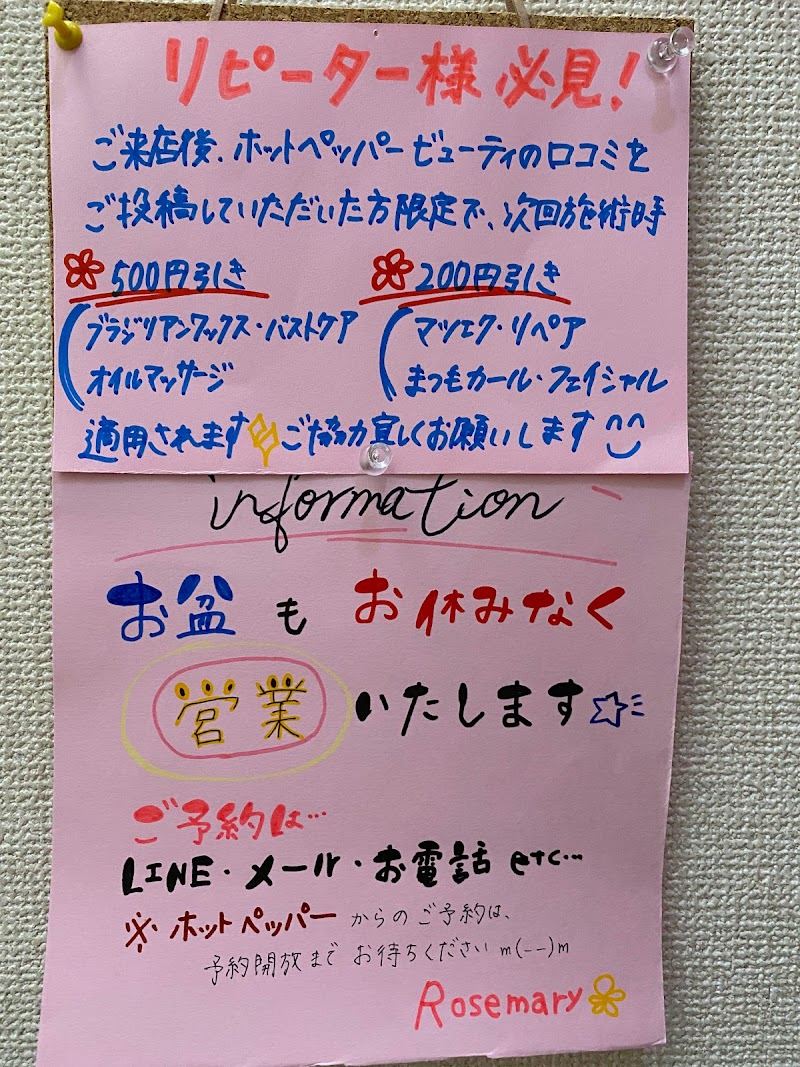 リピーター様 必見!
ご来店後、ホットペッパービューティの口コミを
ご投稿していただいた方限定で、次回施術時
500円引き 200円引き
ブラジリアンワックス・バストケア マツエク・リペア
オイルマッサージ まつもカール・フェイシャル
適用されます ご協力宜しくお願いします^^
information
お盆も お休みなく
営業いたします☆
ご予約は…
LINE・メール・お電話 etc…
※ホットペッパーからのご予約は、
予約開放まで お待ちください m(--)m
Rosemary